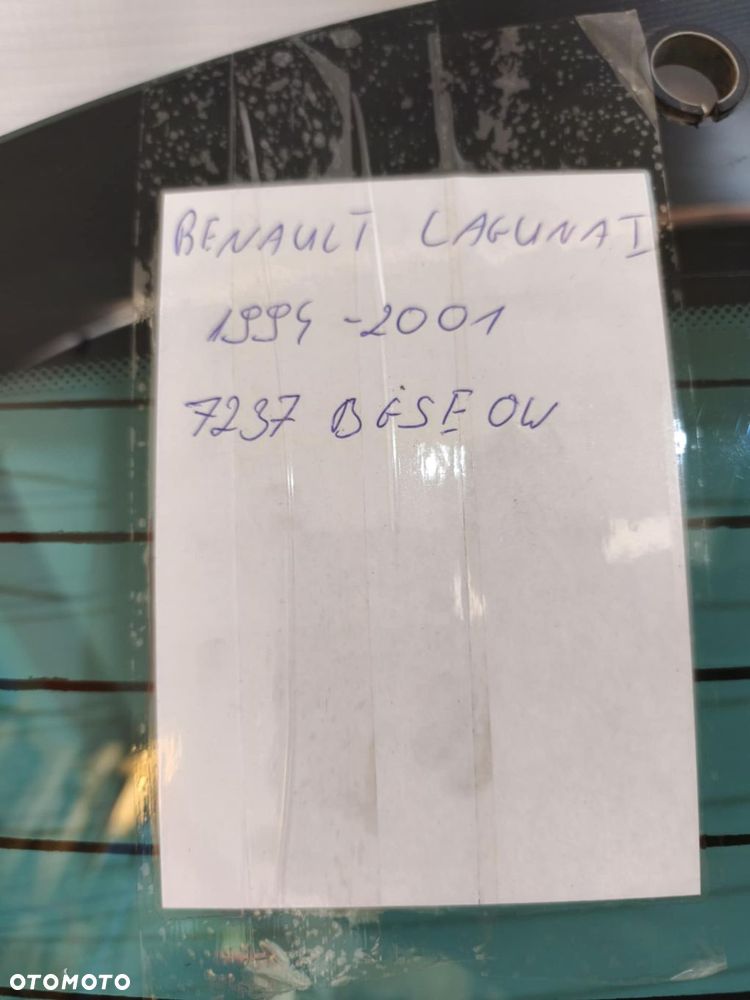 RENAULT LAGUNA I
1994-2001
7237 BGSEOW
OTOMOTO